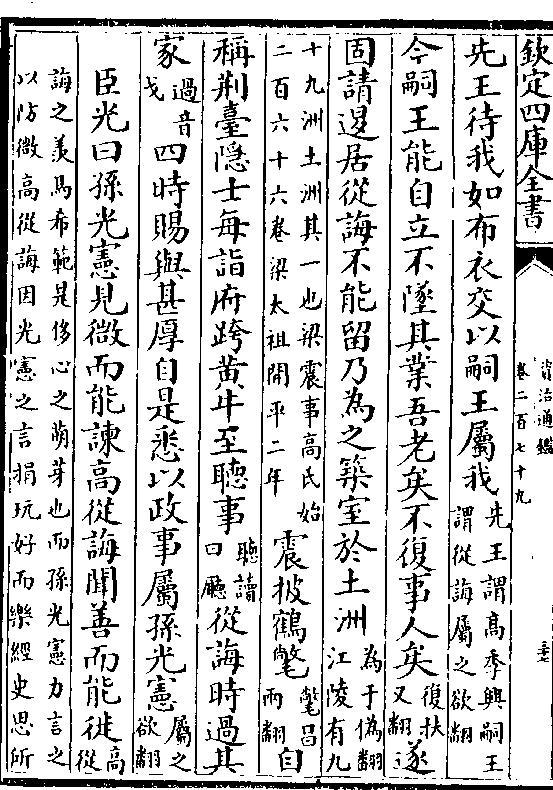 欽定四庫全書
資治通鑑
卷二百七十九
先王待我如布衣交以嗣王屬我先王謂髙季興嗣王謂從誨屬之欲翻
今嗣王能自立不墜其業吾老矣不復事人矣復扶又翻遂
固請退居從誨不能留乃為之築室於土洲為于偽翻江陵有九
十九洲土洲其一也梁震事高氏始二百六十六卷梁太祖開平二年震披鶴氅氅昌兩翻自
稱荆臺隱士每詣府跨黄牛至聽事聽讀曰廳從誨時過其
家過音戈四時賜與甚厚自是悉以政事屬孫光憲屬之欲翻
臣光曰孫光憲見微而能諫高從誨聞善而能徙高從
誨之羨馬希範是侈心之萌芽也而孫光憲力言之
以防微高從誨因光憲之言捐玩好而樂經史思所